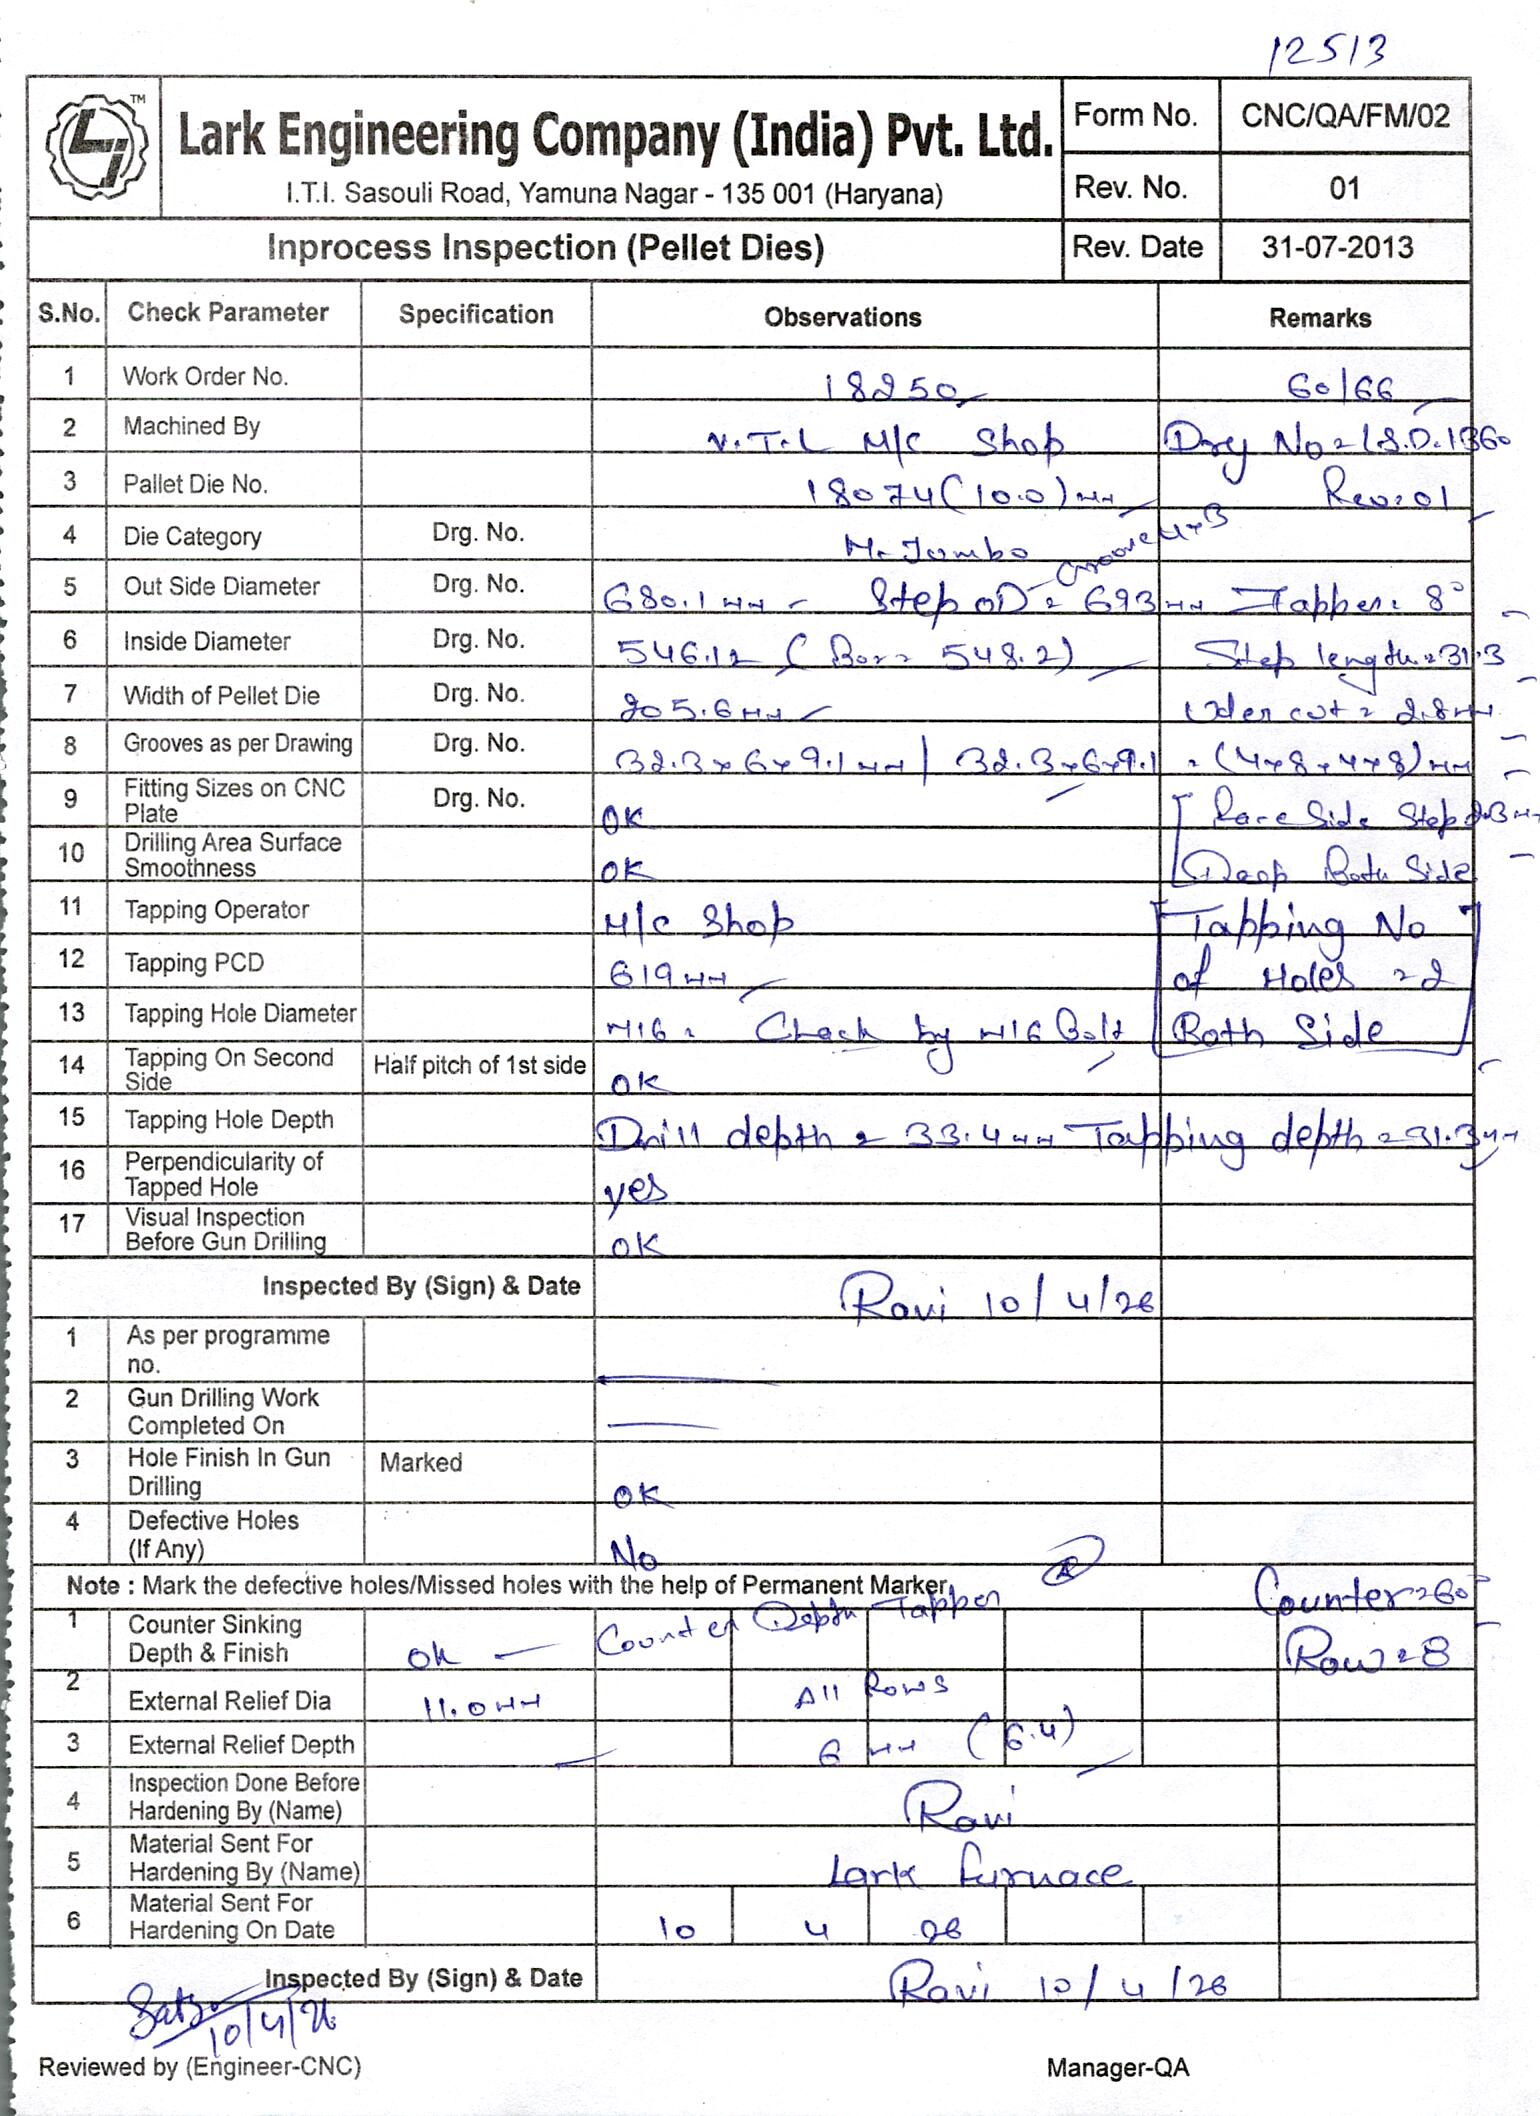 12513
TM
Lark Engineering Company (India) Pvt. Ltd.
I.T.I. Sasouli Road, Yamuna Nagar - 135 001 (Haryana)
Form No. CNC/QA/FM/02
Rev. No. 01
Inprocess Inspection (Pellet Dies) Rev. Date 31-07-2013
S.No. Check Parameter Specification Observations Remarks
1 Work Order No. 18250 60/66
2 Machined By V.T.L M/C Shop Drg No = L.S.D.1360
3 Pallet Die No. 18074 (10.0) mm Rev: 01
4 Die Category Drg. No. M. Jumbo Groove 4x3
5 Out Side Diameter Drg. No. 680.1 mm Step OD = 693 mm Tapper = 8°
6 Inside Diameter Drg. No. 546.12 (Bor = 548.2) Step length = 31.3
7 Width of Pellet Die Drg. No. 205.6 mm Uder cut = 2.8 mm
8 Grooves as per Drawing Drg. No. 32.3x6x9.1 mm | 32.3x6x9.1 = (4x8x4x8) mm
9 Fitting Sizes on CNC Plate Drg. No. OK Race Side Step 2.3 mm
10 Drilling Area Surface Smoothness OK Deep Both Side
11 Tapping Operator M/C Shop Tapping No
12 Tapping PCD 619 mm of Holes = 2
13 Tapping Hole Diameter M16 = Check by M16 Bolt Both Side
14 Tapping On Second Side Half pitch of 1st side OK
15 Tapping Hole Depth Drill depth = 33.4 mm Tapping depth = 31.3 mm
16 Perpendicularity of Tapped Hole yes
17 Visual Inspection Before Gun Drilling OK
Inspected By (Sign) & Date Ravi 10/4/26
1 As per programme no.
2 Gun Drilling Work Completed On
3 Hole Finish In Gun Drilling Marked OK
4 Defective Holes (If Any) No
Note : Mark the defective holes/Missed holes with the help of Permanent Marker. Counter = 60°
1 Counter Sinking Depth & Finish OK Counter Depth Tapper Row = 8
2 External Relief Dia 11.0 mm All Rows
3 External Relief Depth 6 mm (6.4)
4 Inspection Done Before Hardening By (Name) Ravi
5 Material Sent For Hardening By (Name) Lark Furnace
6 Material Sent For Hardening On Date 10 4 26
Inspected By (Sign) & Date Ravi 10/4/26
10/4/26
Reviewed by (Engineer-CNC) Manager-QA